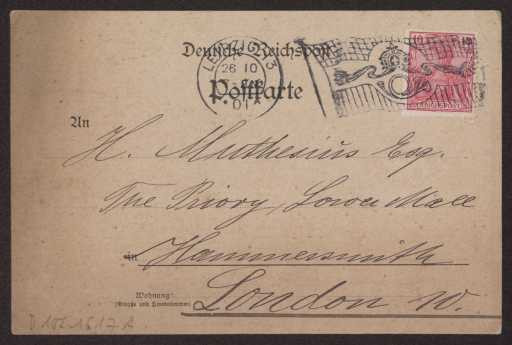 Deutsche Reichspost
LEIPZIG 3
26 10
01
Postkarte
An
H. Muthesius Esq.
The Priory, Lower Mall
in Hammersmith
London W.
Wohnung:
(Straße und Hausnummer)